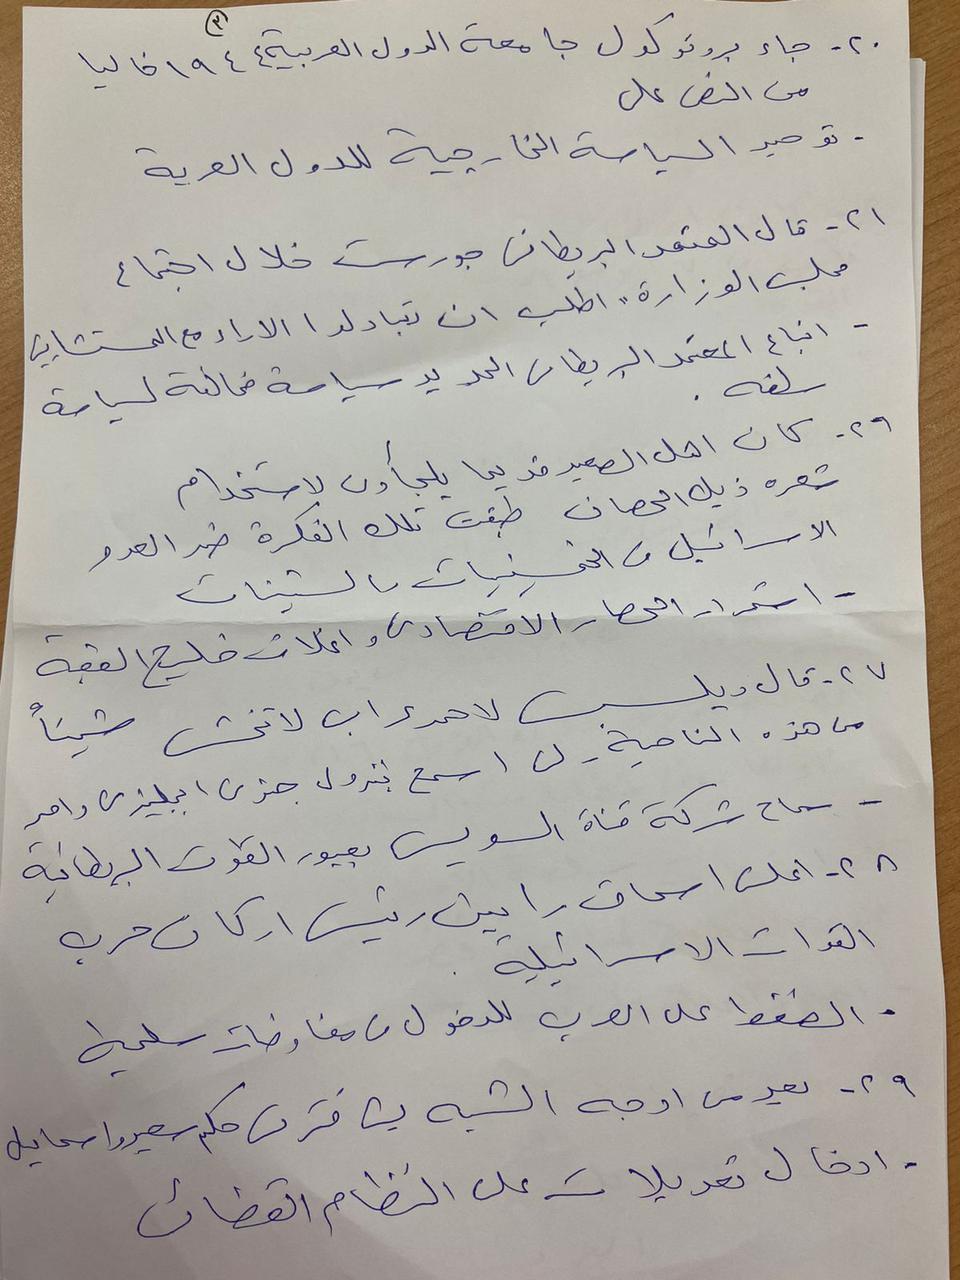 ٣
٢٠- جاء بروتوكول جامعة الدول العربية ١٩٤٤ خاليا
من النص على
- توحيد السياسة الخارجية للدول العربية
٢١- قال المعتمد البريطانى جورست خلال اجتماع
مجلس الوزارة " اطلب ان تبادلوا الاراء مع المستشارين
- اتباع المعتمد البريطانى الجديد سياسة مخالفة لسياسة
سلفه .
٢٩- كان اهل الصعيد قديما يلجأون لاستخدام
شعره ذيل الحصان طبقت تلك الفكرة ضد العدو
الاسرائيلى فى الخمسينيات والستينات
- استمرار الحصار الاقتصادى واغلاق خليج العقبة
٢٧- قال ديلسبس لاحمد عرابى لا تخش شيئاً
من هذه الناحية - لن اسمح بنزول جندى انجليزى واحد
- سماح شركة قناة السويس بعبور القوات البريطانية
٢٨- اعلن اسحاق رابين رئيس اركان حرب
القوات الاسرائيلية .
- الضغط على العرب للدخول فى مفاوضات سلمية
٢٩- يعد من اوجه الشبه بين فترتى حكم سعيد واسماعيل
- ادخال تعديلات على النظام القضائى